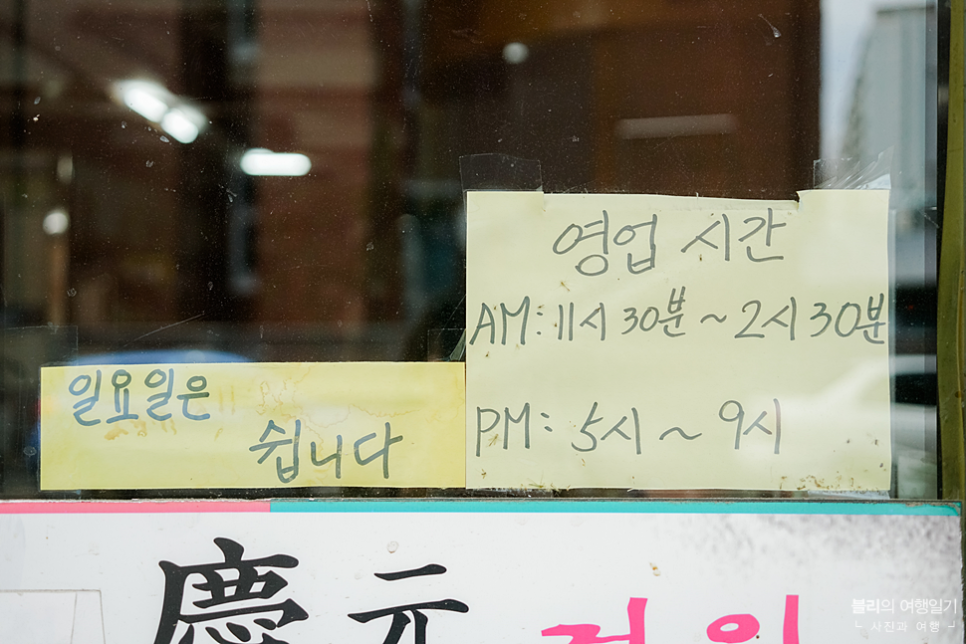 영업 시간
AM: 11시 30분 ~ 2시 30분
PM: 5시 ~ 9시
일요일은
쉽니다
慶元
블리의 여행일기
사진과 여행